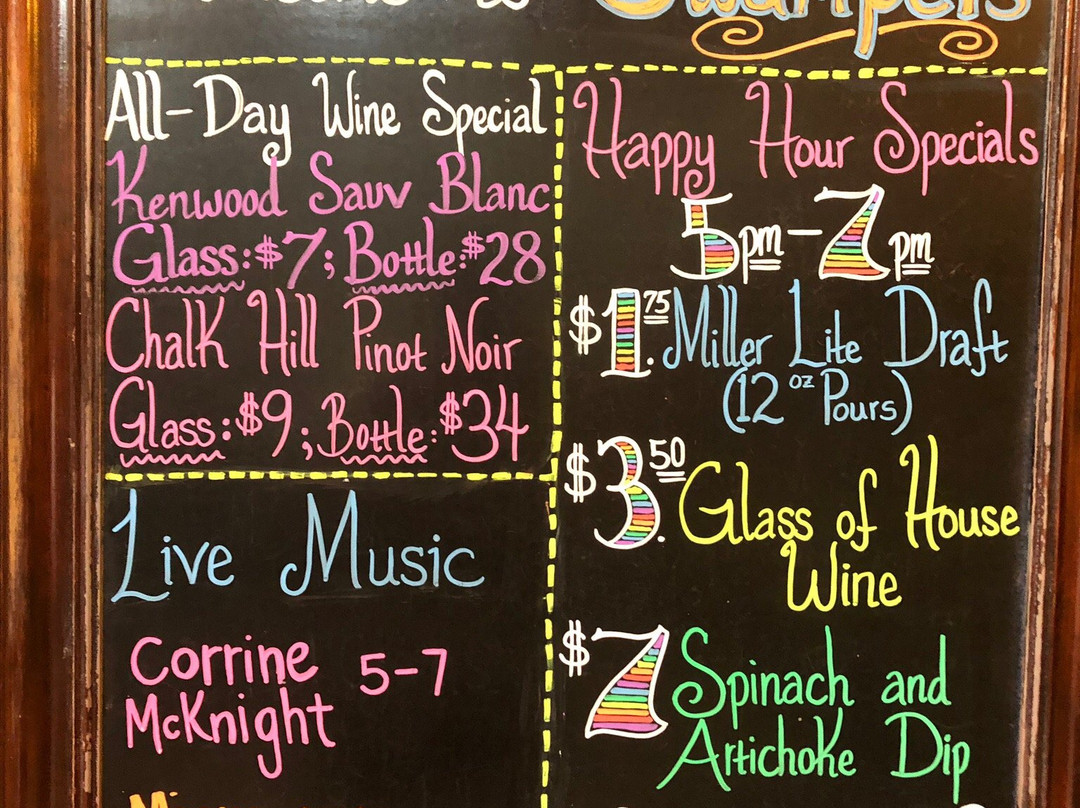 Swampers
All-Day Wine Special
Kenwood Sauv Blanc
Glass:$7; Bottle:$28
Chalk Hill Pinot Noir
Glass:$9; Bottle:$34
Live Music
Corrine 5-7
McKnight
Happy Hour Specials
5pm-7pm
$1.75 Miller Lite Draft
(12 oz Pours)
$3.50 Glass of House
Wine
$7 Spinach and
Artichoke Dip